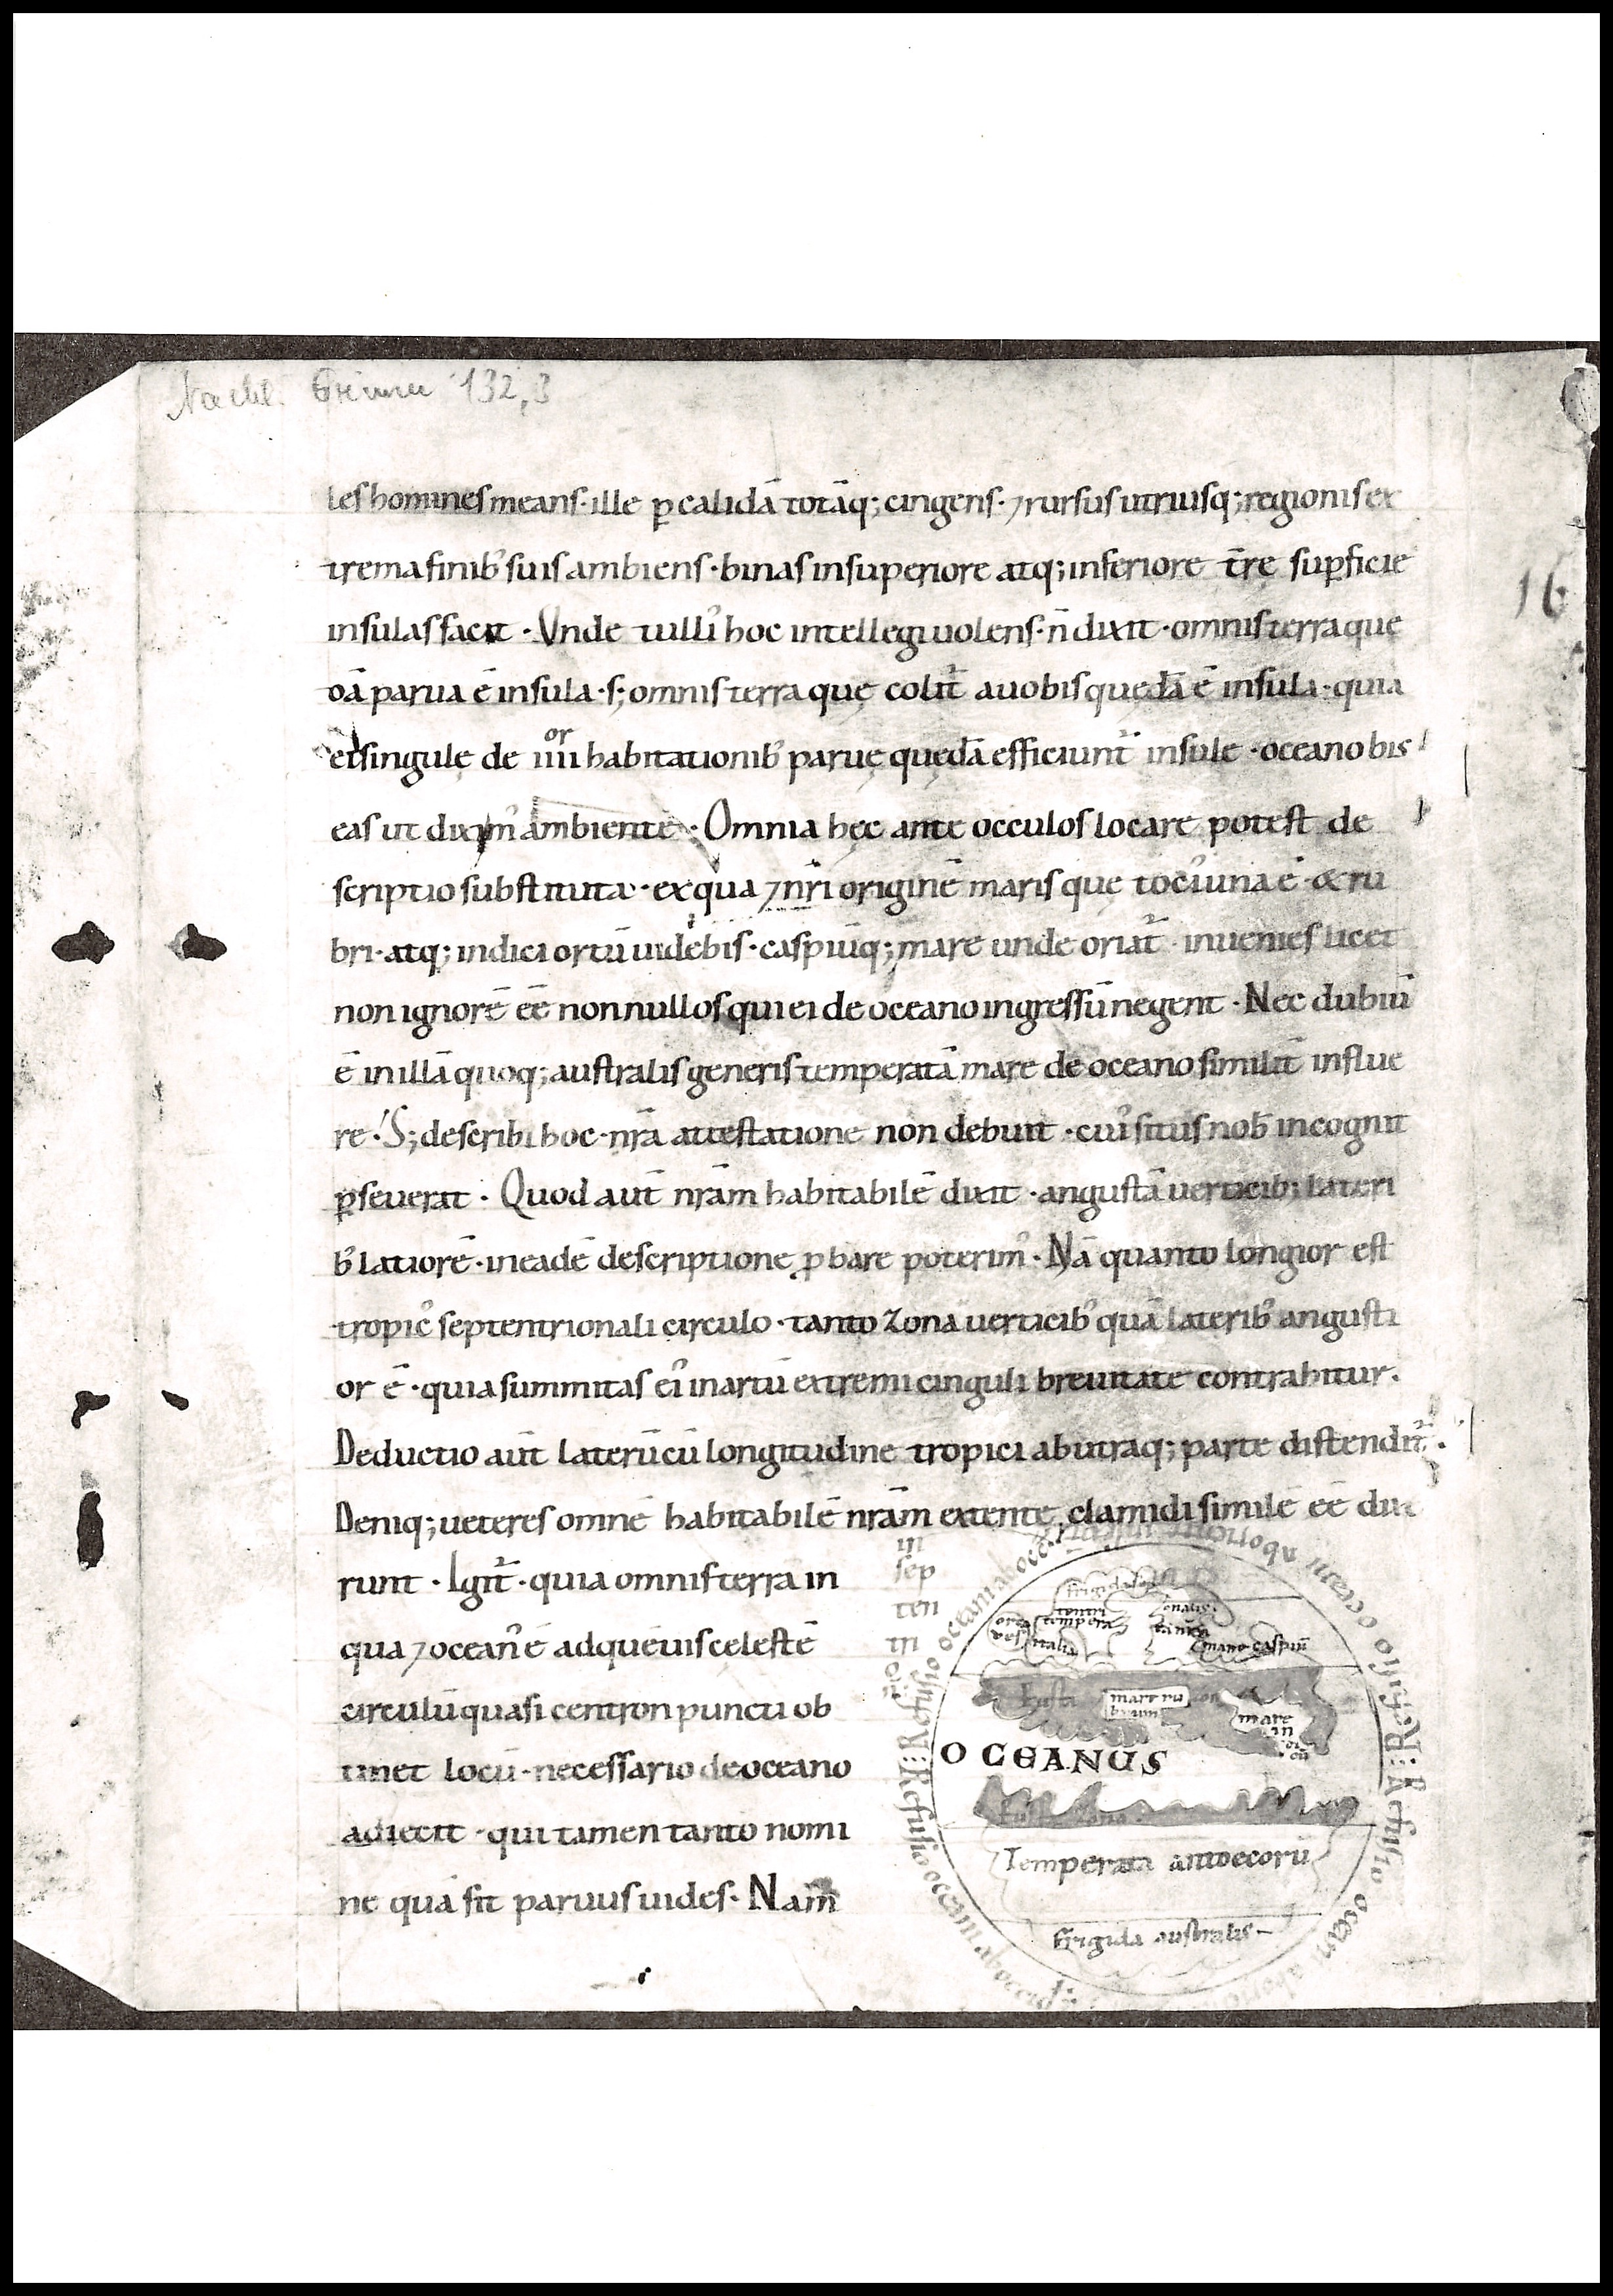 Nachl. Grimm 132,3
les homines means · ille ꝑ calidā totāq; cingens · ⁊ rursus utriusq; regionis ex
trema finib᷒ suis ambiens · binas insuperiore atq; inferiore tr̄ę suꝑficie
insulas facit · Vnde tulli᷒ hoc intellegi uolens · n̄ dixit · omnis terra quę
oā parua ē insula · s; omnis terra quę colit᷑ auobis quędā ē insula · quia
16
et singulę de iiii^or habitationib᷒ paruę quędā efficiunt᷑ insulę · oceano bis
eas ut dixim᷒ ambiente · Omnia hęc ante occulos locare potest de
scriptio substituta · ex qua ⁊ nr̄i originē maris quę toci᷒ una ē · & ru
bri · atq; indici ortū uidebis · caspiūq; mare unde oriat᷑ inuenies licet
non ignorē eē nonnullos qui ei de oceano ingressū negent · Nec dubiū
ē in illā quoq; australis generis temperatā mare de oceano similit̄ influe
re · S; describi hoc · nr̄a attestatione non debuit · cui᷒ situs nob̄ incognit
ꝑseuerat · Quod aut̄ nr̄am habitabilē dixit · angustā uerticib; lateri
b᷒ latiorē · in eadē descriptione ꝓbare poterim᷒ · Nā quanto longior est
tropic᷒ septentrionali circulo · tanto zona uerticib᷒ quā laterib᷒ angusti
or ē · quia summitas ei᷒ inartū extremi cinguli breuitate contrahitur.
Deductio aut̄ laterū cū longitudine tropici ab utraq; parte distendit᷑.
Deniq; ueteres omnē habitabilē nr̄am extentę clamidi similē eē dixe
runt · Igit᷑ · quia omnis terra in
qua ⁊ ocean᷒ ē adquēuis celestē
circulū quasi centron puncti ob
tinet locū · necessario de oceano
adiecit · qui tamen tanto nomi
ne quā sit paruus uides · Nam
in
sep
ten
tri
Refusio oceani ab occ
Refusio oceani ab occid
Refusio oceani ab
Refusio oceani
frigida sep
tentri
onalis
tempera
italia
mare caspiū
mare ru
brum
mare
in
di
cū
OCEANUS
Temperata antoecorū
Frigida australis